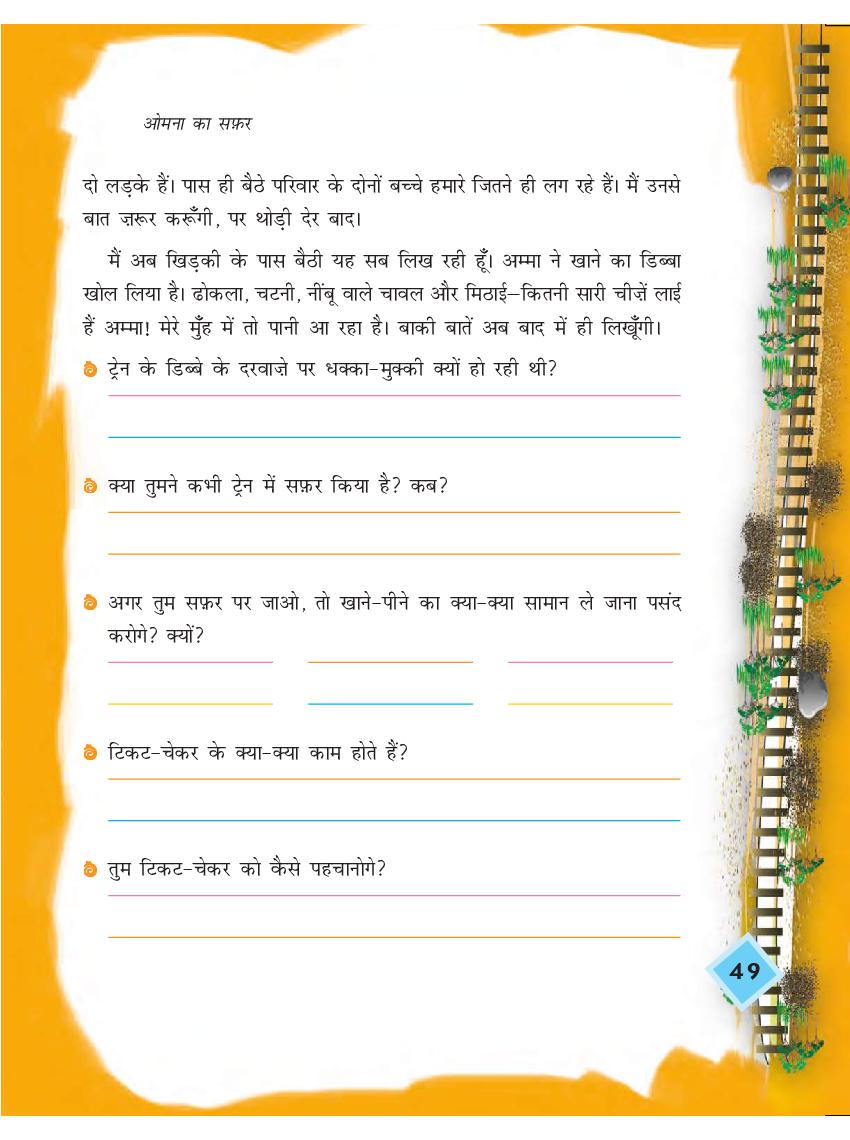 ओमना का सफ़र
दो लड़के हैं। पास ही बैठे परिवार के दोनों बच्चे हमारे जितने ही लग रहे हैं। मैं उनसे
बात ज़रूर करूँगी, पर थोड़ी देर बाद।
मैं अब खिड़की के पास बैठी यह सब लिख रही हूँ। अम्मा ने खाने का डिब्बा
खोल लिया है। ढोकला, चटनी, नींबू वाले चावल और मिठाई–कितनी सारी चीज़ें लाई
हैं अम्मा! मेरे मुँह में तो पानी आ रहा है। बाकी बातें अब बाद में ही लिखूँगी।
ट्रेन के डिब्बे के दरवाज़े पर धक्का-मुक्की क्यों हो रही थी?
क्या तुमने कभी ट्रेन में सफ़र किया है? कब?
अगर तुम सफ़र पर जाओ, तो खाने-पीने का क्या-क्या सामान ले जाना पसंद
करोगे? क्यों?
टिकट-चेकर के क्या-क्या काम होते हैं?
तुम टिकट-चेकर को कैसे पहचानोगे?
49